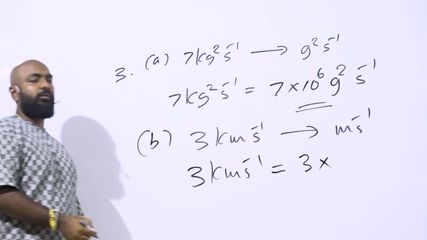 3. (a) 7kg² s⁻¹ → g² s⁻¹
7kg² s⁻¹ = 7×10⁶ g² s⁻¹
(b) 3kms⁻¹ → ms⁻¹
3kms⁻¹ = 3×